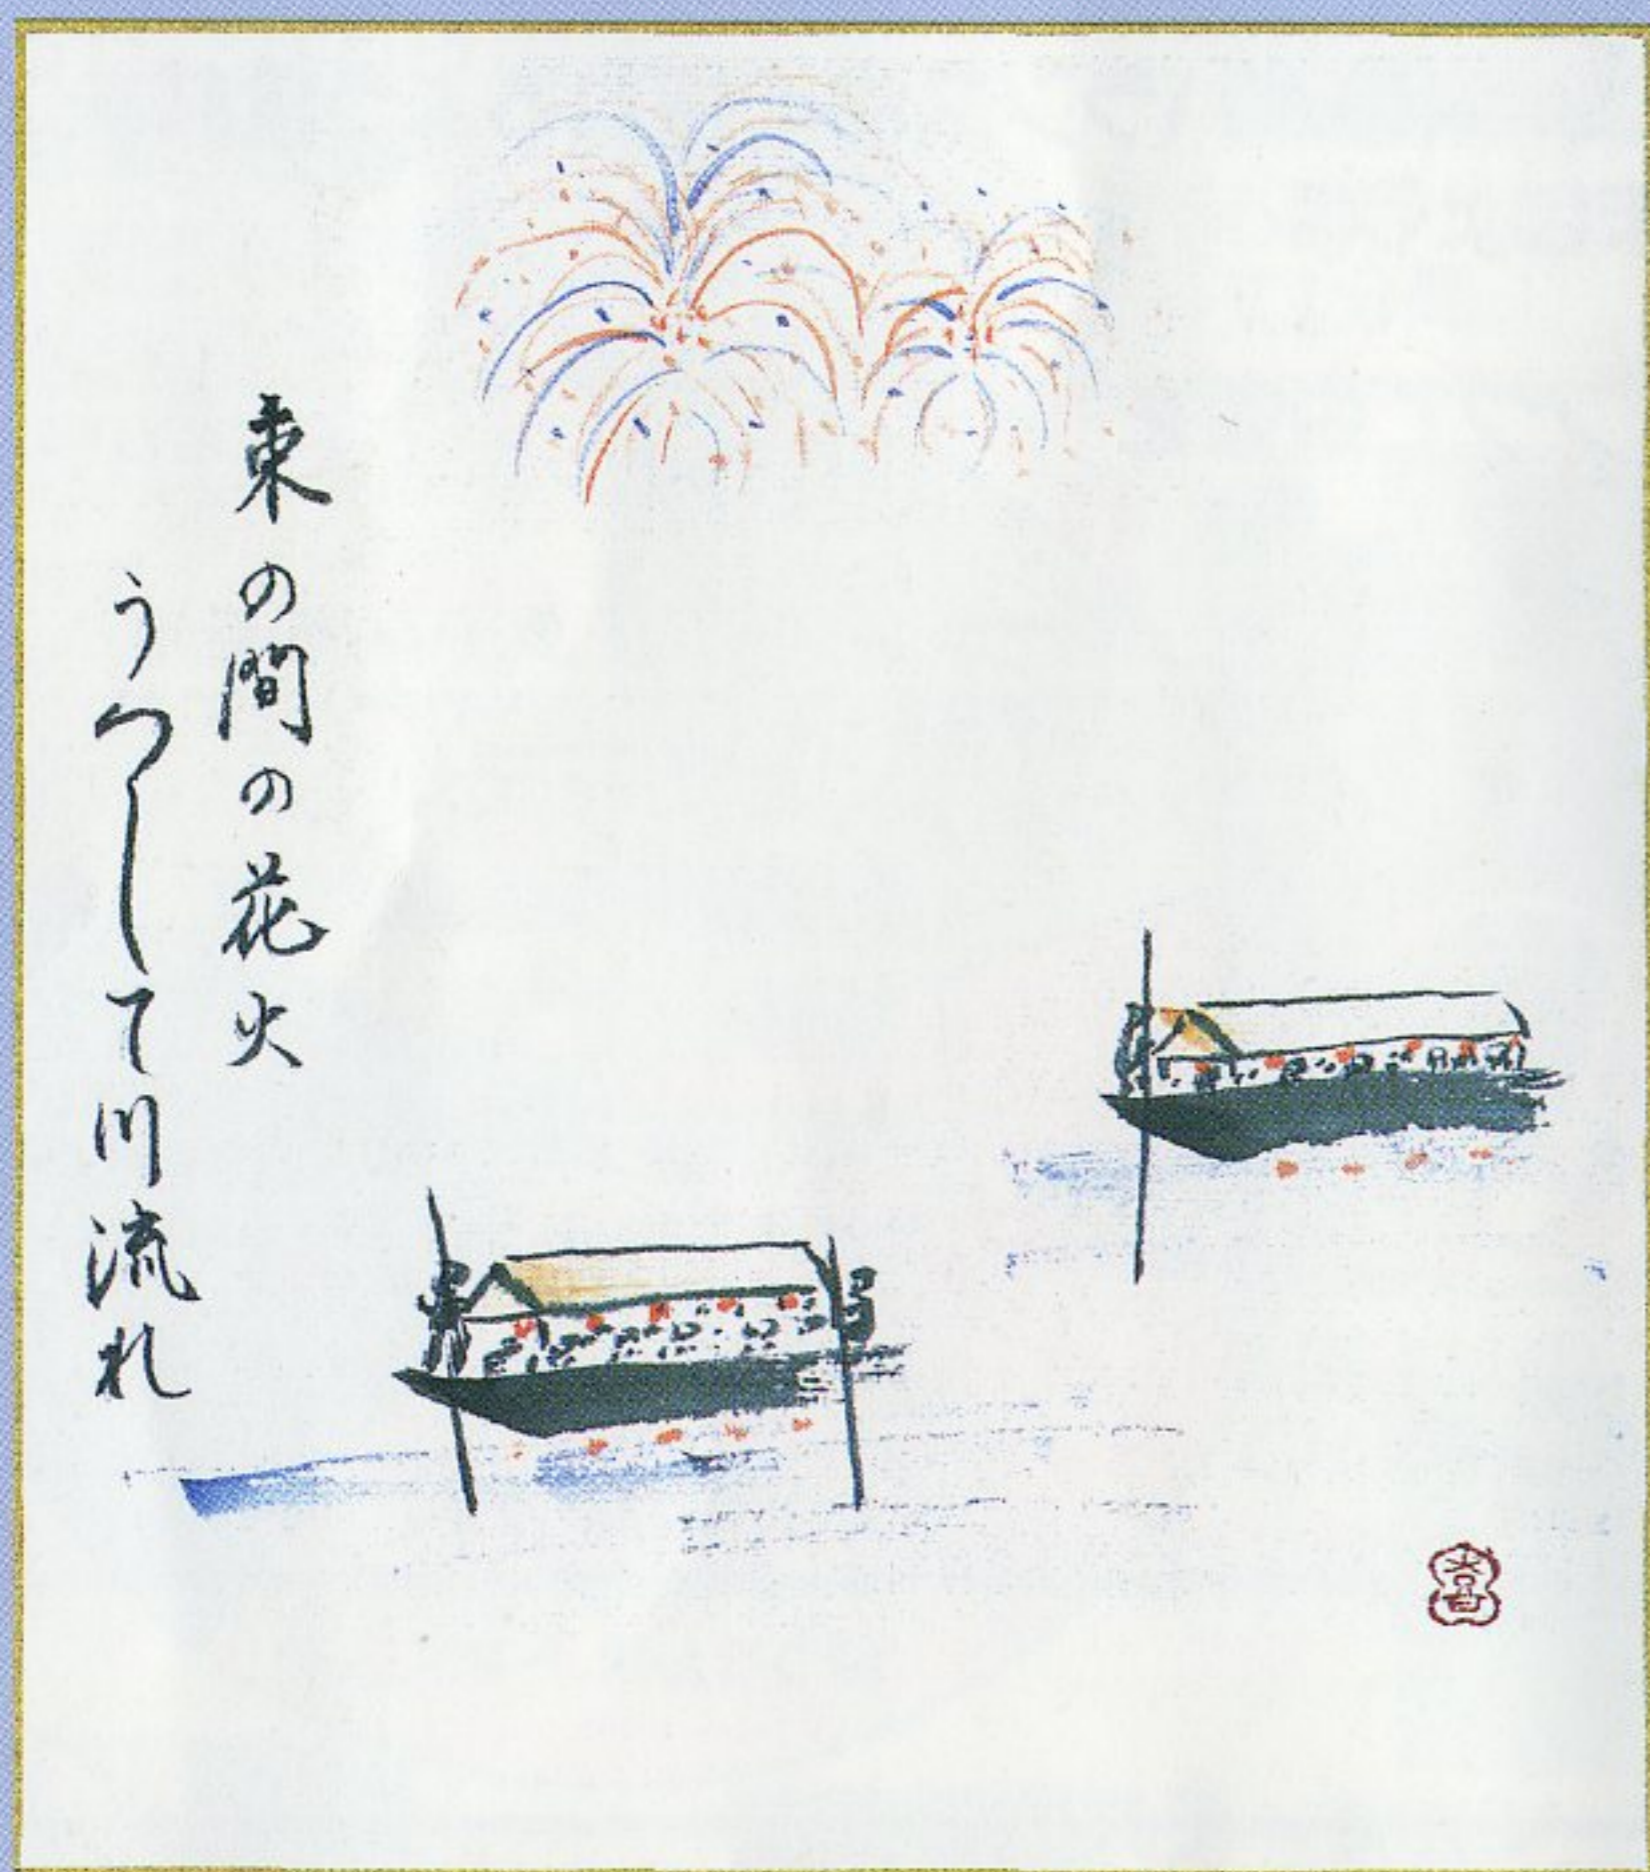 束の間の花火
うつして川流れ
喜